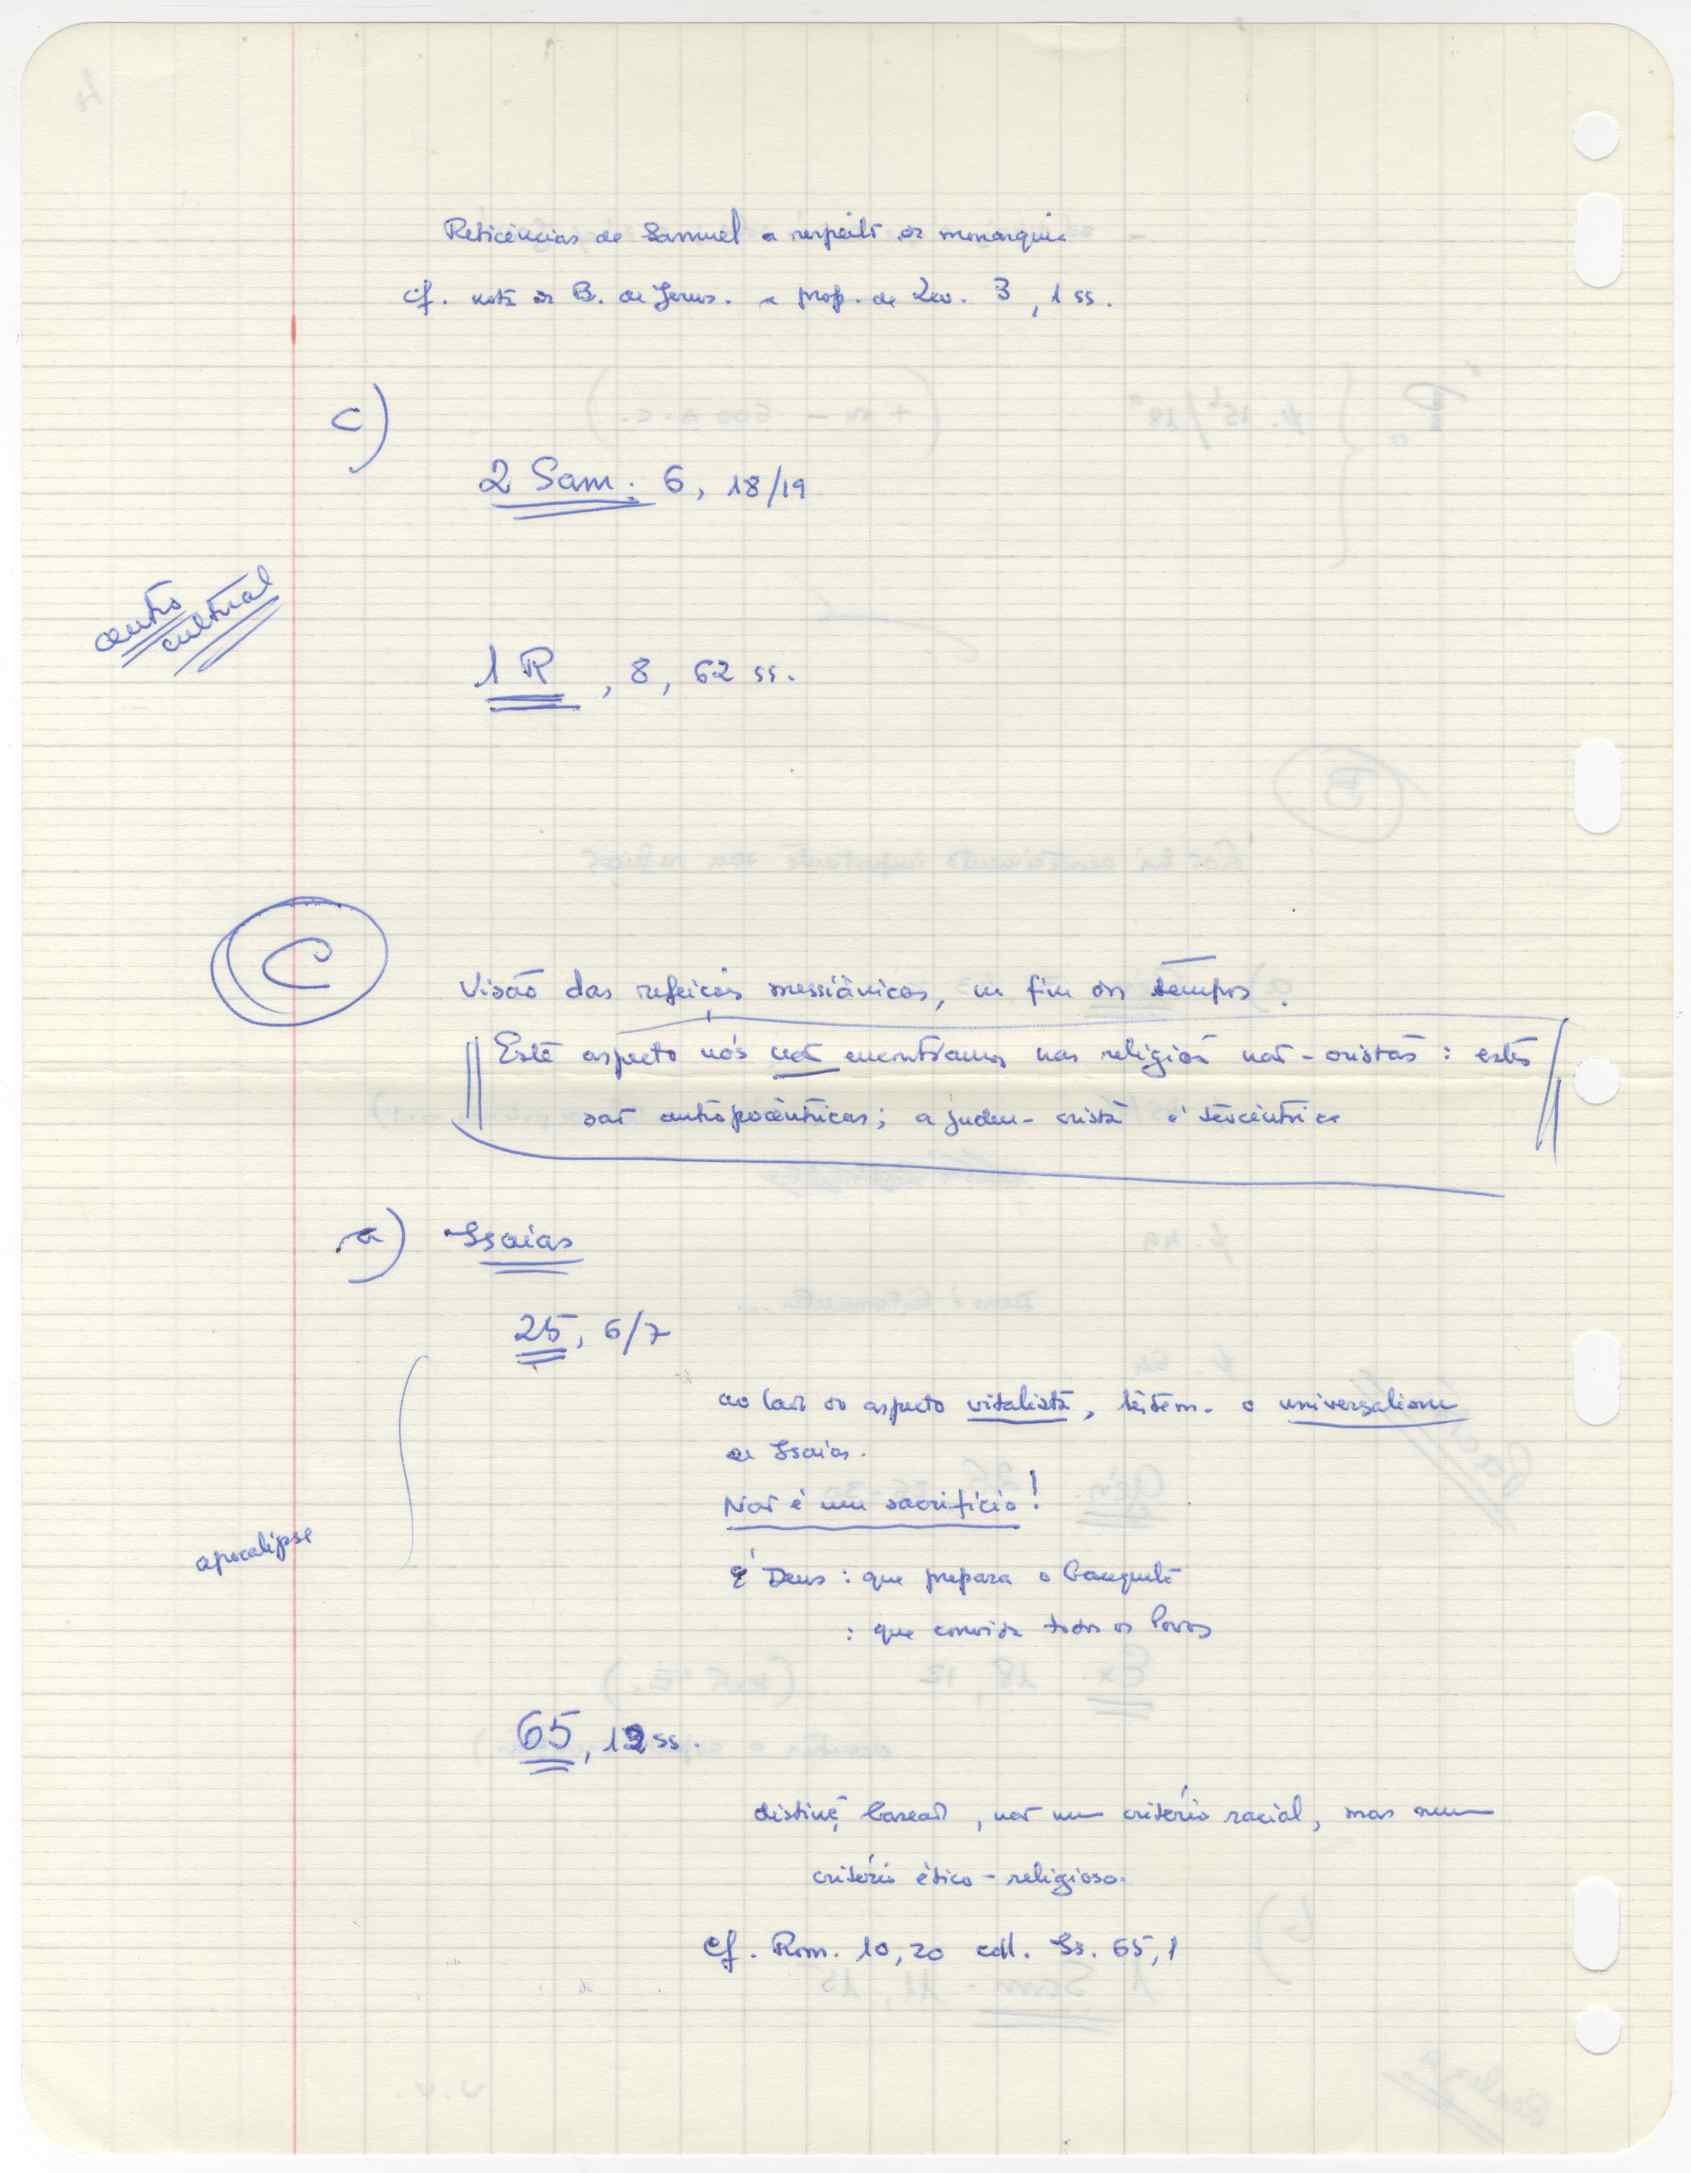 Reticências de Samuel a respeito da monarquia
cf. nota da B. de Jerus. a prop. de Lev. 3, 1 ss.
c)
2 Sam. 6, 18/19
centro
cultual
1 R, 8, 62 ss.
C
Visão das refeições messiânicas, no fim dos tempos.
Este aspecto nós não encontramos nas religiões não-cristãs: estas
são antropocêntricas; a judeu-cristã é teocêntrica
a) Isaías
25, 6/7
ao lado do aspecto vitalista, tem-se o universalismo
de Isaías.
Não é um sacrifício!
É Deus: que prepara o banquete
: que convida todos os Povos
apocalipse
65, 12 ss.
distinç. baseada, não num critério racial, mas num
critério ético-religioso.
Cf. Rom. 10, 20 coll. Is. 65, 1